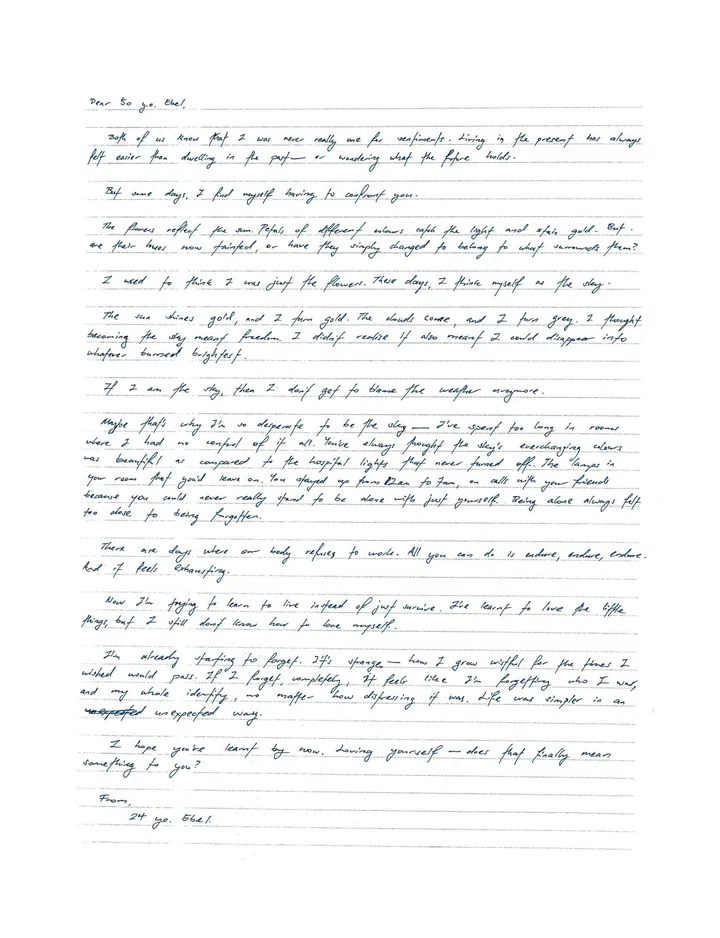 Dear 50 yo. Ebel,
Both of us know that I was never really one for sentiments. Living in the present has always
felt easier than dwelling in the past — or wondering what the future holds.
But some days, I find myself having to confront you.
The flowers reflect the sun. Petals of different colours catch the light and stain gold. But
are their hues now tainted, or have they simply changed to belong to what surrounds them?
I used to think I was just the flowers. These days, I think myself as the sky.
The sun shines gold, and I turn gold. The clouds come, and I turn grey. I thought
becoming the sky meant freedom. I didn't realise it also meant I could disappear into
whatever burned brightest.
If I am the sky, then I don't get to blame the weather anymore.
Maybe that's why I'm so desperate to be the sky — I've spent too long in rooms
where I had no control of it all. You've always thought the sky's everchanging colours
was beautiful as compared to the hospital lights that never turned off. The lamps in
your room that you'd leave on. You stayed up from 12am to 7am, on calls with your friends
because you could never really stand to be alone with just yourself. Being alone always felt
too close to being forgotten.
There are days where our body refuses to work. All you can do is endure, endure, endure.
And it feels exhausting.
Now I'm trying to learn to live instead of just survive. I've learnt to love the little
things, but I still don't know how to love myself.
I'm already starting to forget. It's strange — how I grow wistful for the times I
wished would pass. If I forget completely, it feels like I'm forgetting who I was,
and my whole identity, no matter how distressing it was. Life was simpler in an
unexpected way.
I hope you've learnt by now. Loving yourself — does that finally mean
something to you?
From,
24 yo. Ebel.